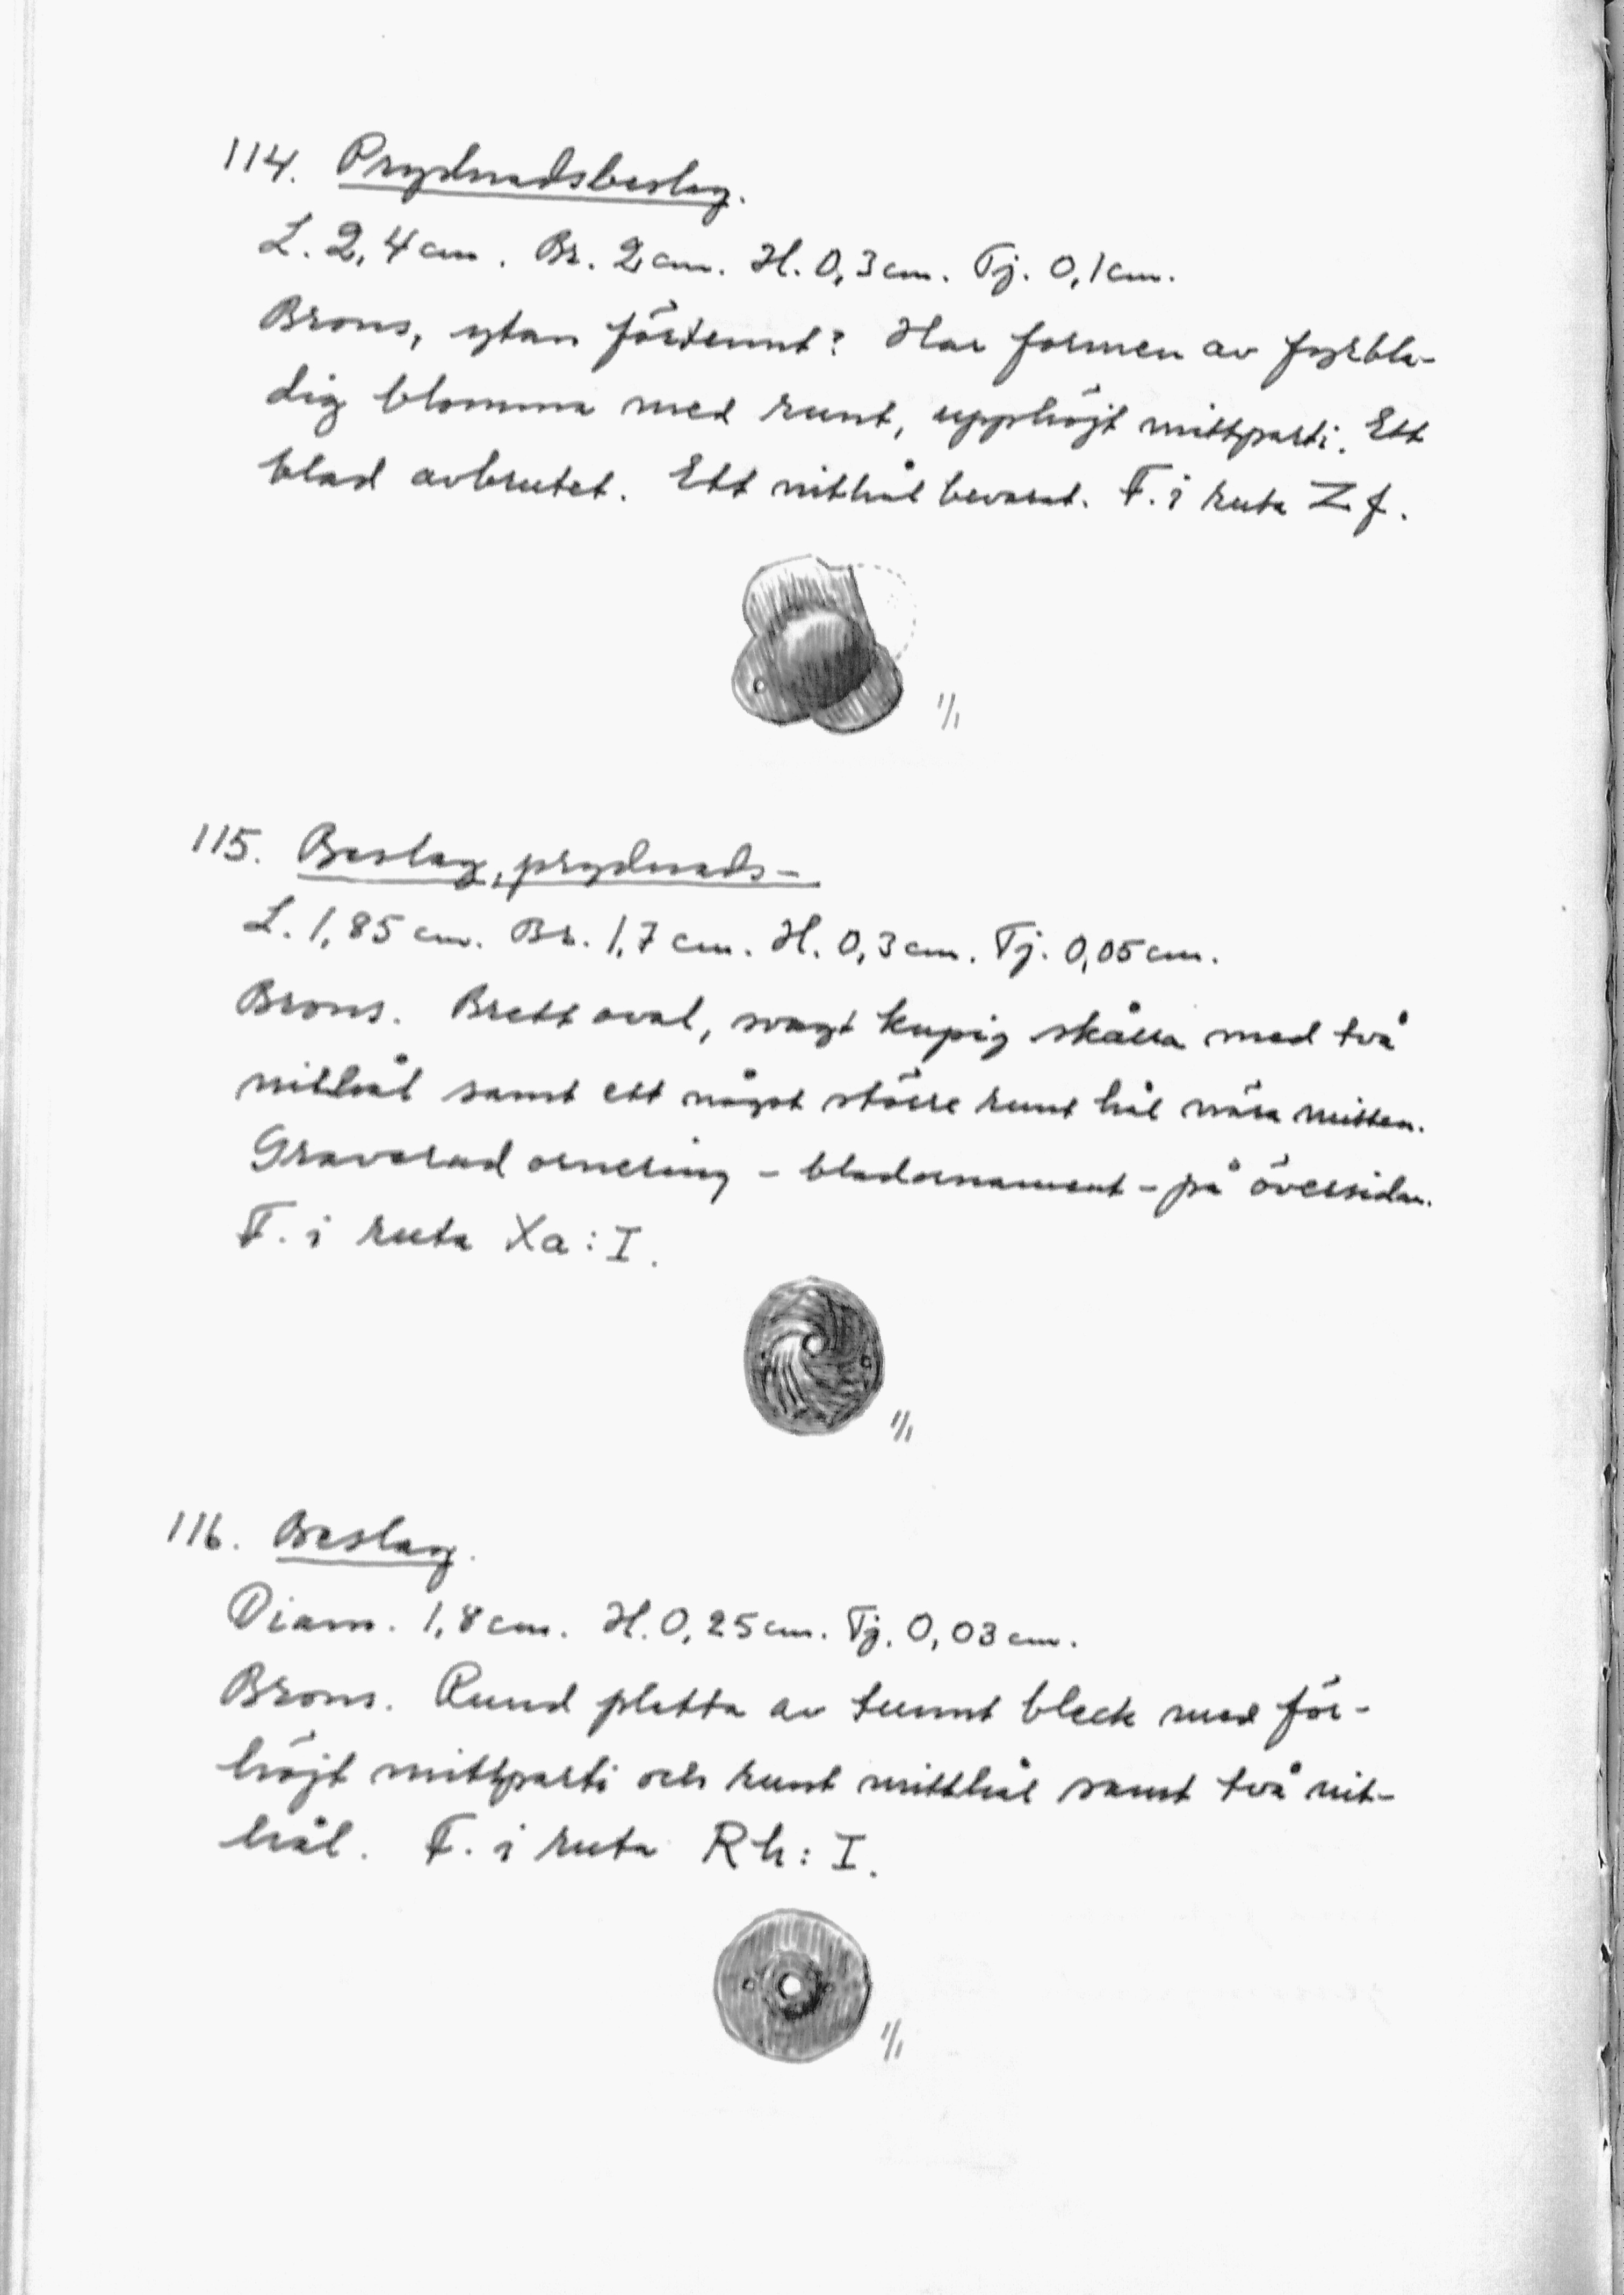 114. Prydnadsbeslag.
L. 2,4 cm. Br. 2 cm. H. 0,3 cm. Tj. 0,1 cm.
Brons, ytan förtennt? Har formen av fyrbla-
dig blomma med runt, upphöjt mittparti. Ett
blad avbrutet. Ett nithål bevarat. F. i ruta Zf.
1/1
115. Beslag, prydnads-
L. 1,85 cm. Br. 1,7 cm. H. 0,3 cm. Tj. 0,05 cm.
Brons. Brett oval, svagt kupig skålla med två
nithål samt ett något större runt hål nära mitten.
Graverad ornering - bladornament - på översidan.
F. i ruta Xa: I.
1/1
116. Beslag.
Diam. 1,8 cm. H. 0,25 cm. Tj. 0,03 cm.
Brons. Rund platta av tunnt bleck med för-
höjt mittparti och runt mitthål samt två nit-
hål. F. i ruta Rh: I.
1/1